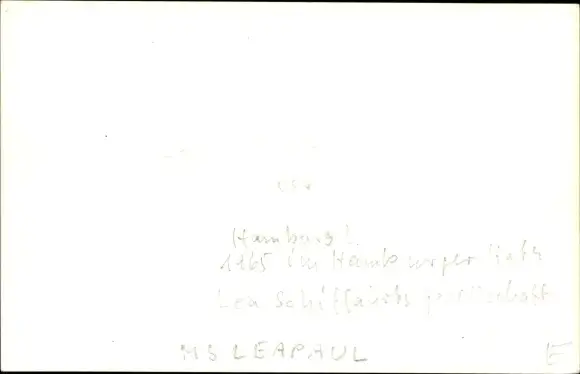 Hamburg
1965 im Hamburger
Lea Schiffahrts gesellschaft
MS LEAPAUL
E